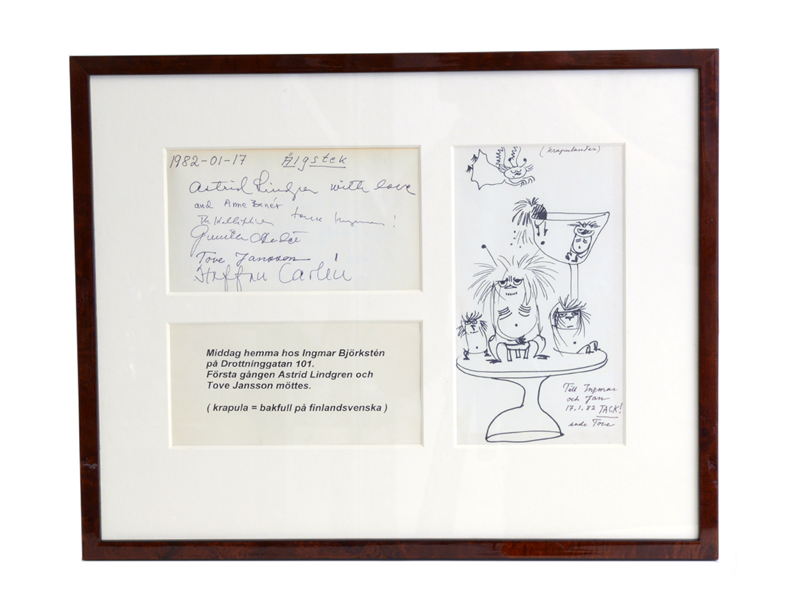 1982-01-17 Älgstek
Astrid Lindgren with love
and Anne
Gunilla
Tove Jansson
Staffan Carlén
Middag hemma hos Ingmar Björkstén
på Drottninggatan 101.
Första gången Astrid Lindgren och
Tove Jansson möttes.
( krapula = bakfull på finlandsvenska )
(krapulander)
Till Ingmar
och Jan
17.1.82 TACK!
Tove